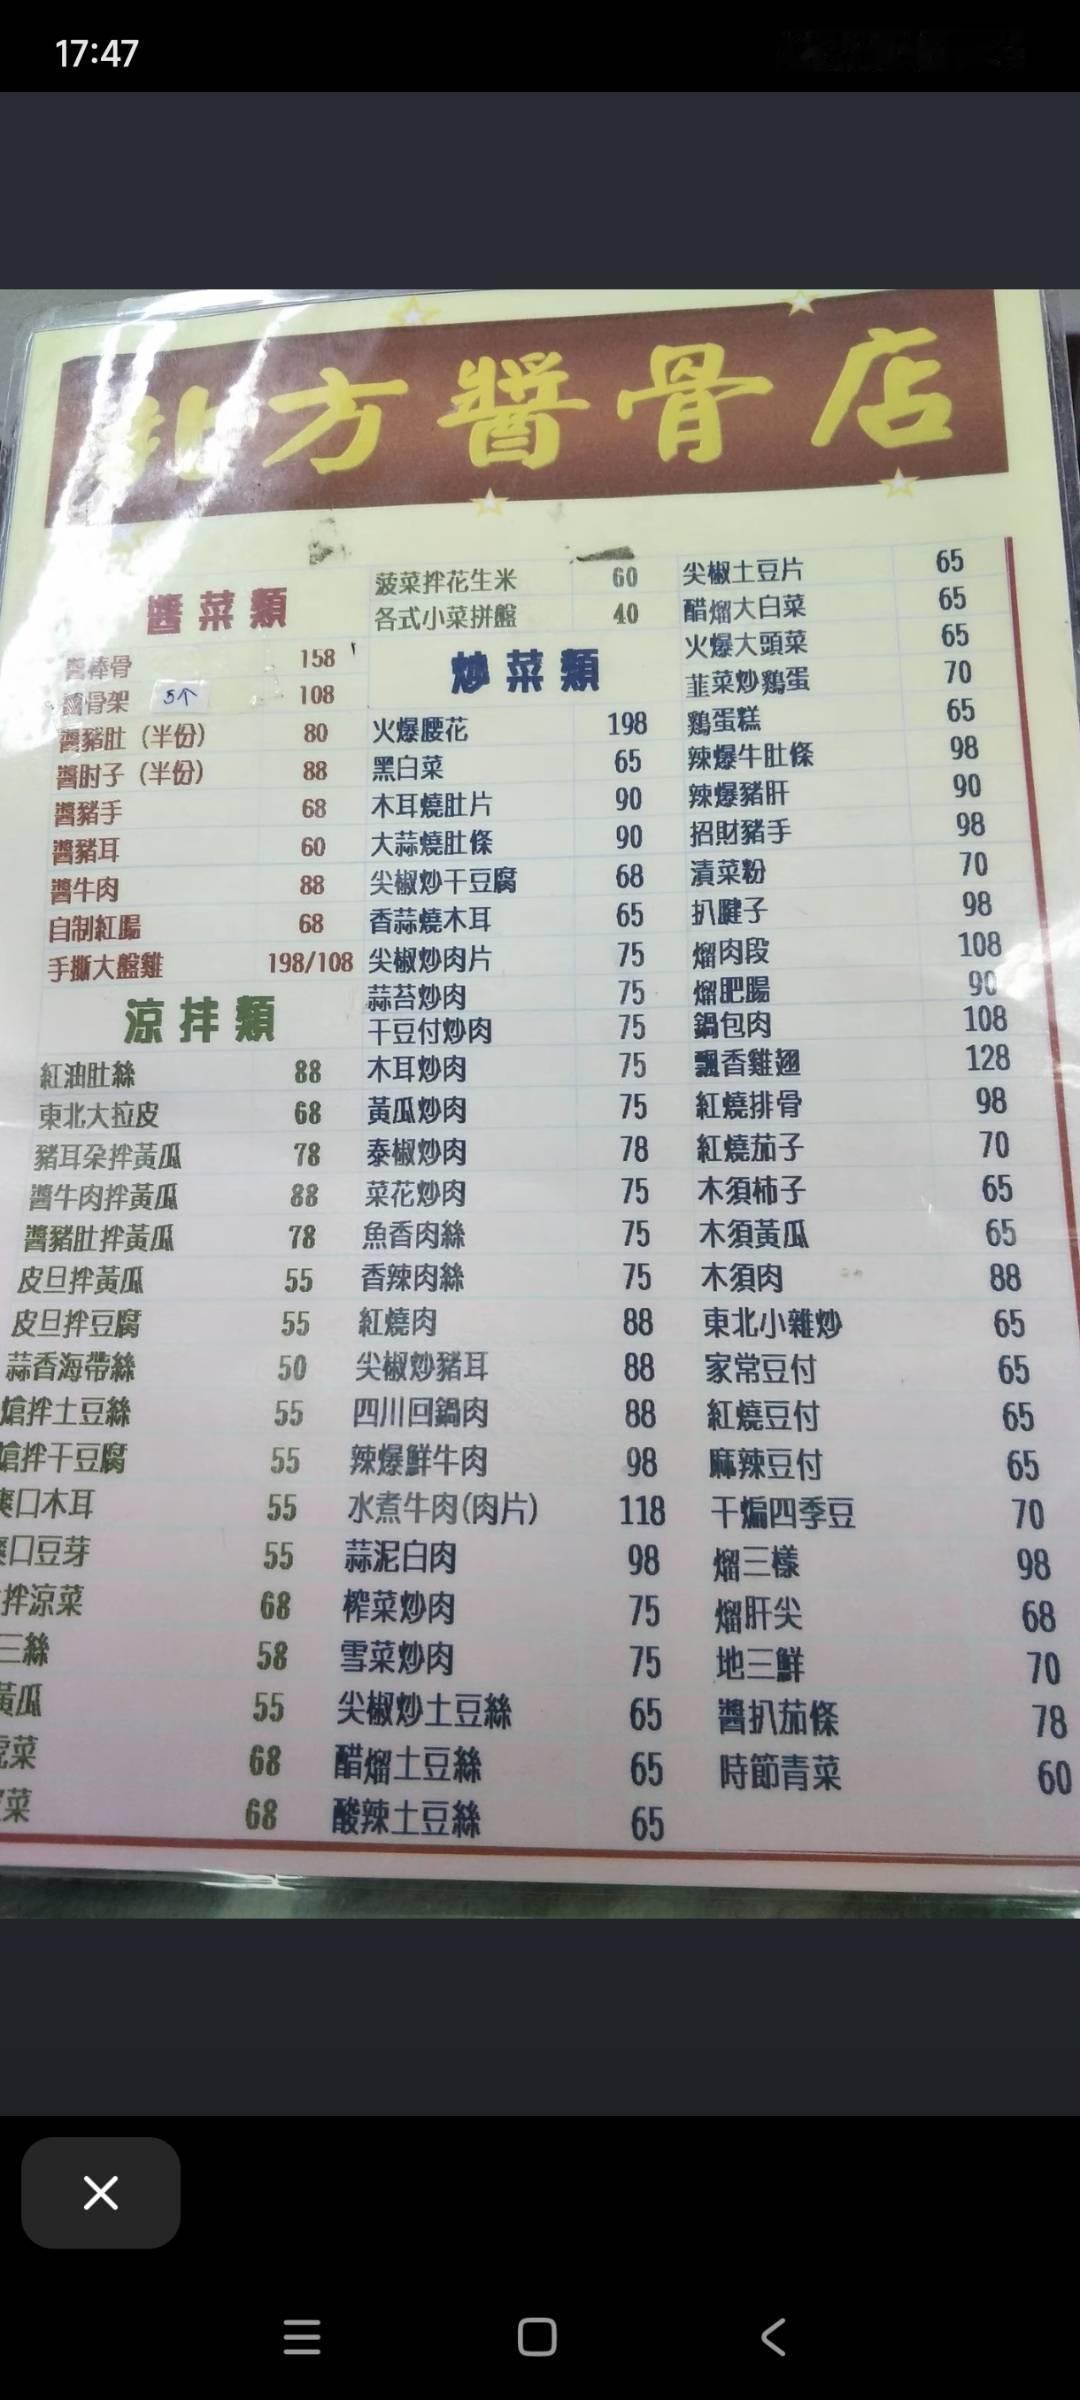 17:47
北方醬骨店
醬菜類
醬棒骨 158
醬骨架 5个 108
醬豬肚（半份） 80
醬肘子（半份） 88
醬豬手 68
醬豬耳 60
醬牛肉 88
自制紅腸 68
手撕大盤雞 198/108
涼拌類
紅油肚絲 88
東北大拉皮 68
豬耳朵拌黃瓜 78
醬牛肉拌黃瓜 88
醬豬肚拌黃瓜 78
皮旦拌黃瓜 55
皮旦拌豆腐 55
蒜香海帶絲 50
熗拌土豆絲 55
熗拌干豆腐 55
爽口木耳 55
爽口豆芽 55
拌涼菜 68
三絲 58
黃瓜 55
菜 68
菜 68
菠菜拌花生米 60
各式小菜拼盤 40
炒菜類
火爆腰花 198
黑白菜 65
木耳燒肚片 90
大蒜燒肚條 90
尖椒炒干豆腐 68
香蒜燒木耳 65
尖椒炒肉片 75
蒜苔炒肉 75
干豆付炒肉 75
木耳炒肉 75
黃瓜炒肉 75
泰椒炒肉 78
菜花炒肉 75
魚香肉絲 75
香辣肉絲 75
紅燒肉 88
尖椒炒豬耳 88
四川回鍋肉 88
辣爆鮮牛肉 98
水煮牛肉(肉片) 118
蒜泥白肉 98
榨菜炒肉 75
雪菜炒肉 75
尖椒炒土豆絲 65
醋熘土豆絲 65
酸辣土豆絲 65
尖椒土豆片 65
醋熘大白菜 65
火爆大頭菜 65
韮菜炒鷄蛋 70
鷄蛋糕 65
辣爆牛肚條 98
辣爆豬肝 90
招財豬手 98
漬菜粉 70
扒腱子 98
熘肉段 108
熘肥腸 90
鍋包肉 108
飄香雞翅 128
紅燒排骨 98
紅燒茄子 70
木須柿子 65
木須黃瓜 65
木須肉 88
東北小雜炒 65
家常豆付 65
紅燒豆付 65
麻辣豆付 65
干煸四季豆 70
熘三樣 98
熘肝尖 68
地三鮮 70
醬扒茄條 78
時節青菜 60